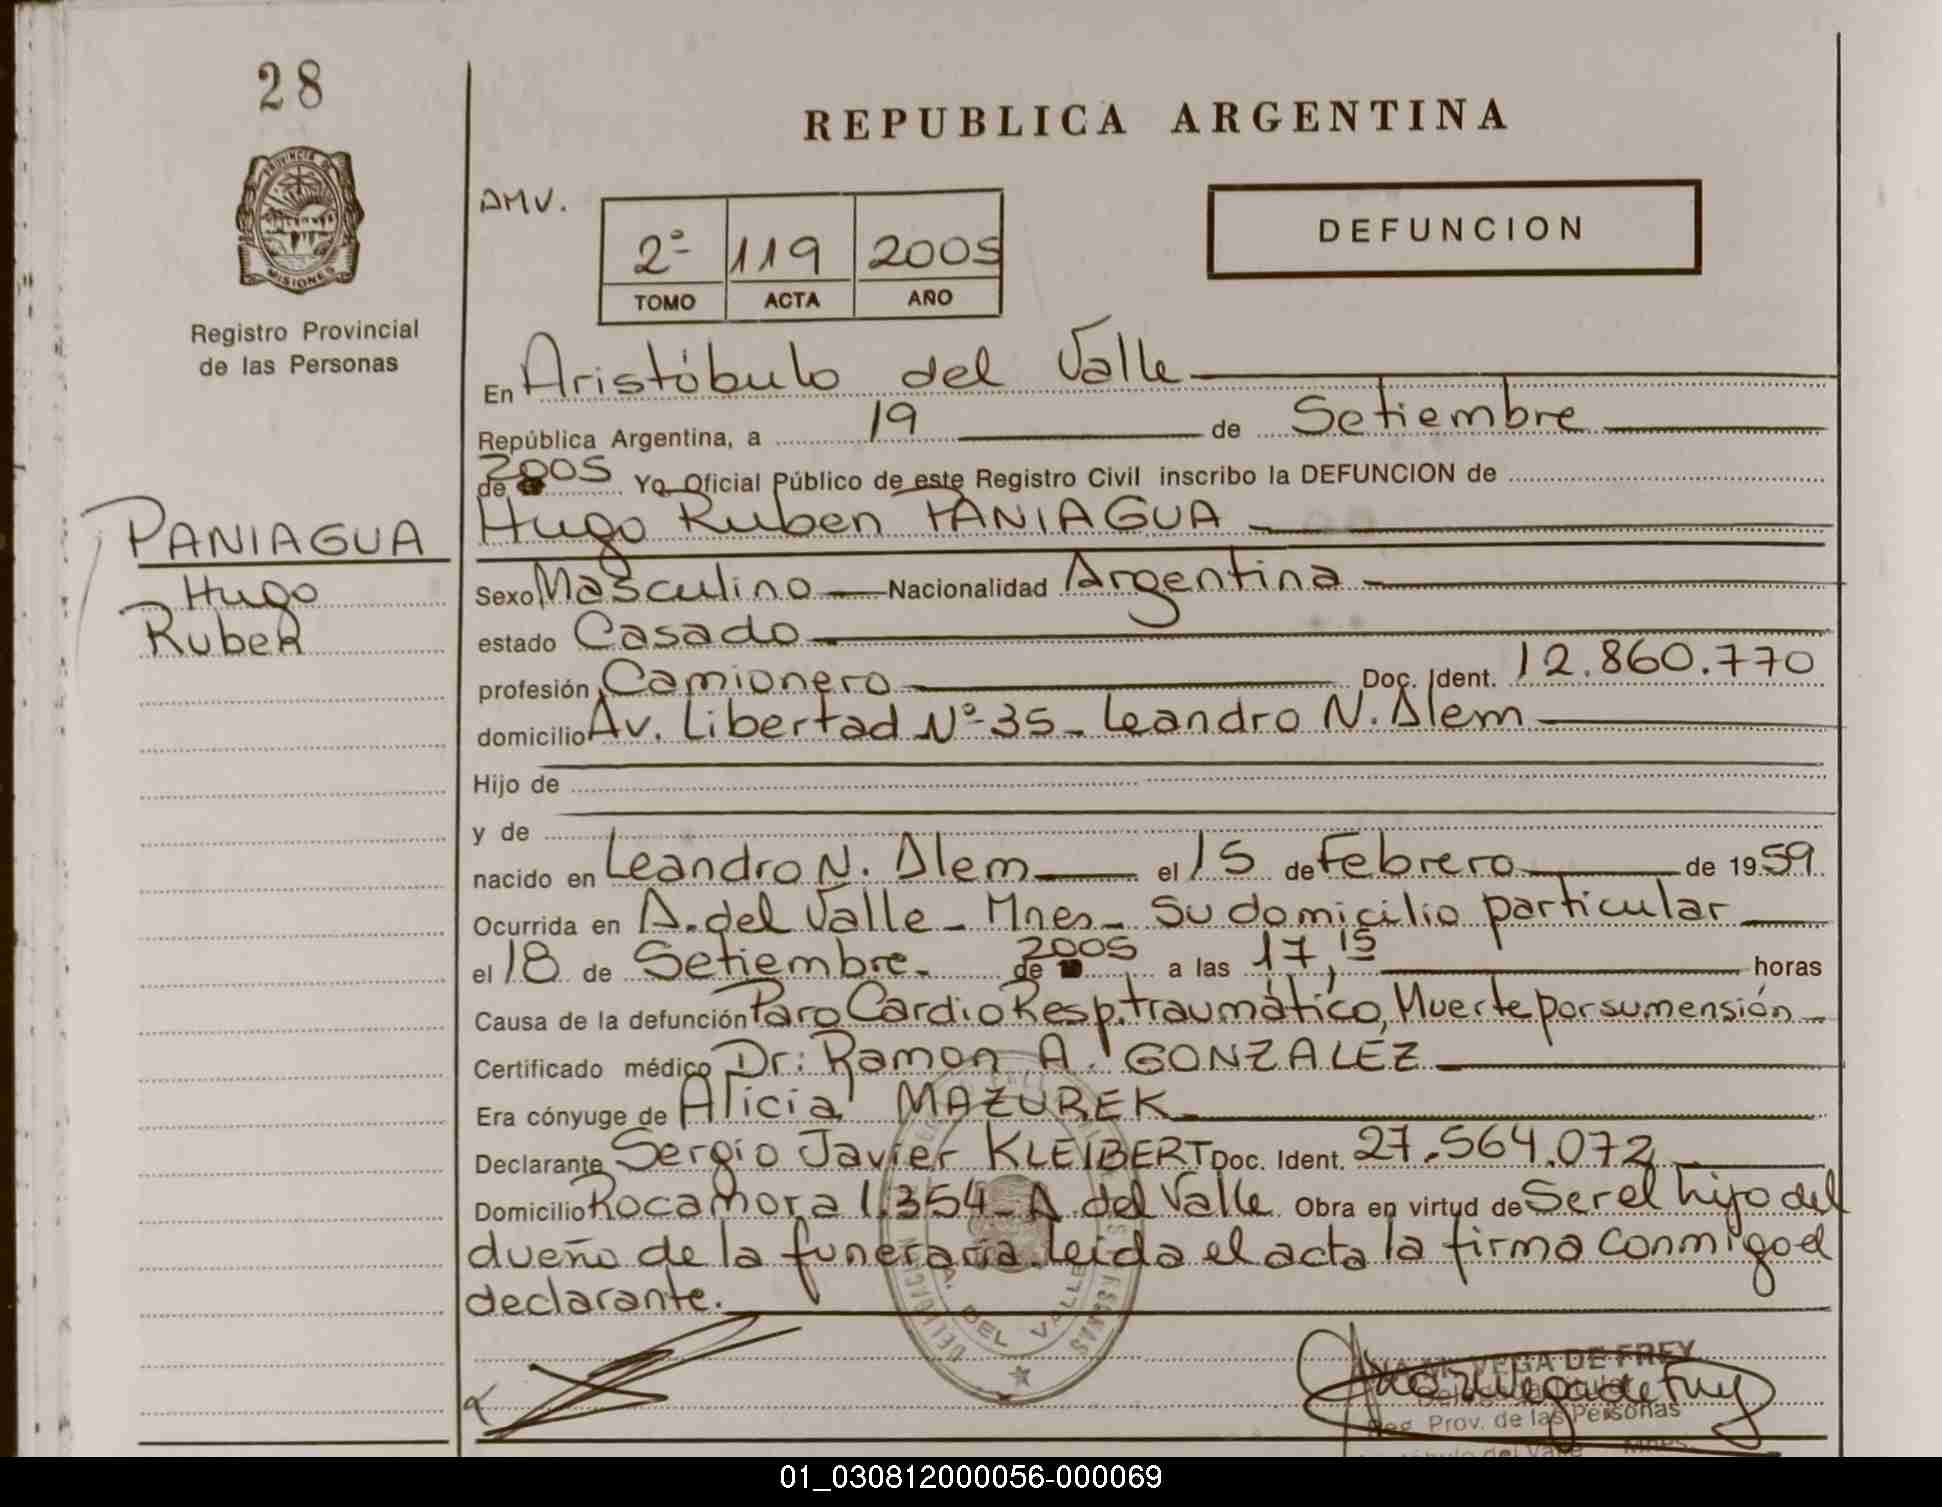 28
REPUBLICA ARGENTINA
PROVINCIA DE MISIONES
Registro Provincial
de las Personas
AMV.
2º 119 2005
TOMO ACTA AÑO
DEFUNCION
En Aristóbulo del Valle
República Argentina, a 19 de Setiembre
de 2005 Yo Oficial Público de este Registro Civil inscribo la DEFUNCION de
Hugo Ruben PANIAGUA
PANIAGUA
Hugo
Ruben
Sexo Masculino Nacionalidad Argentina
estado Casado
profesión Camionero Doc. Ident. 12.860.770
domicilio Av. Libertad Nº 35 - Leandro N. Alem
Hijo de
y de
nacido en Leandro N. Alem el 15 de Febrero de 1959
Ocurrida en A. del Valle - Mnes - Su domicilio particular
el 18 de Setiembre de 2005 a las 17,15 horas
Causa de la defunción Paro Cardio Resp. traumático, Muerte por sumensión
Certificado médico Dr: Ramon A. GONZALEZ
Era cónyuge de Alicia MAZUREK
Declarante Sergio Javier KLEIBERT Doc. Ident. 27.564.072
Domicilio Rocamora 1.354 - A. del Valle Obra en virtud de Ser el hijo del
dueño de la funeraria. Leida el acta la firma conmigo el
declarante.
A. DEL VALLE
VEGA DE FREY
Reg. Prov. de las Personas
01_030812000056-000069